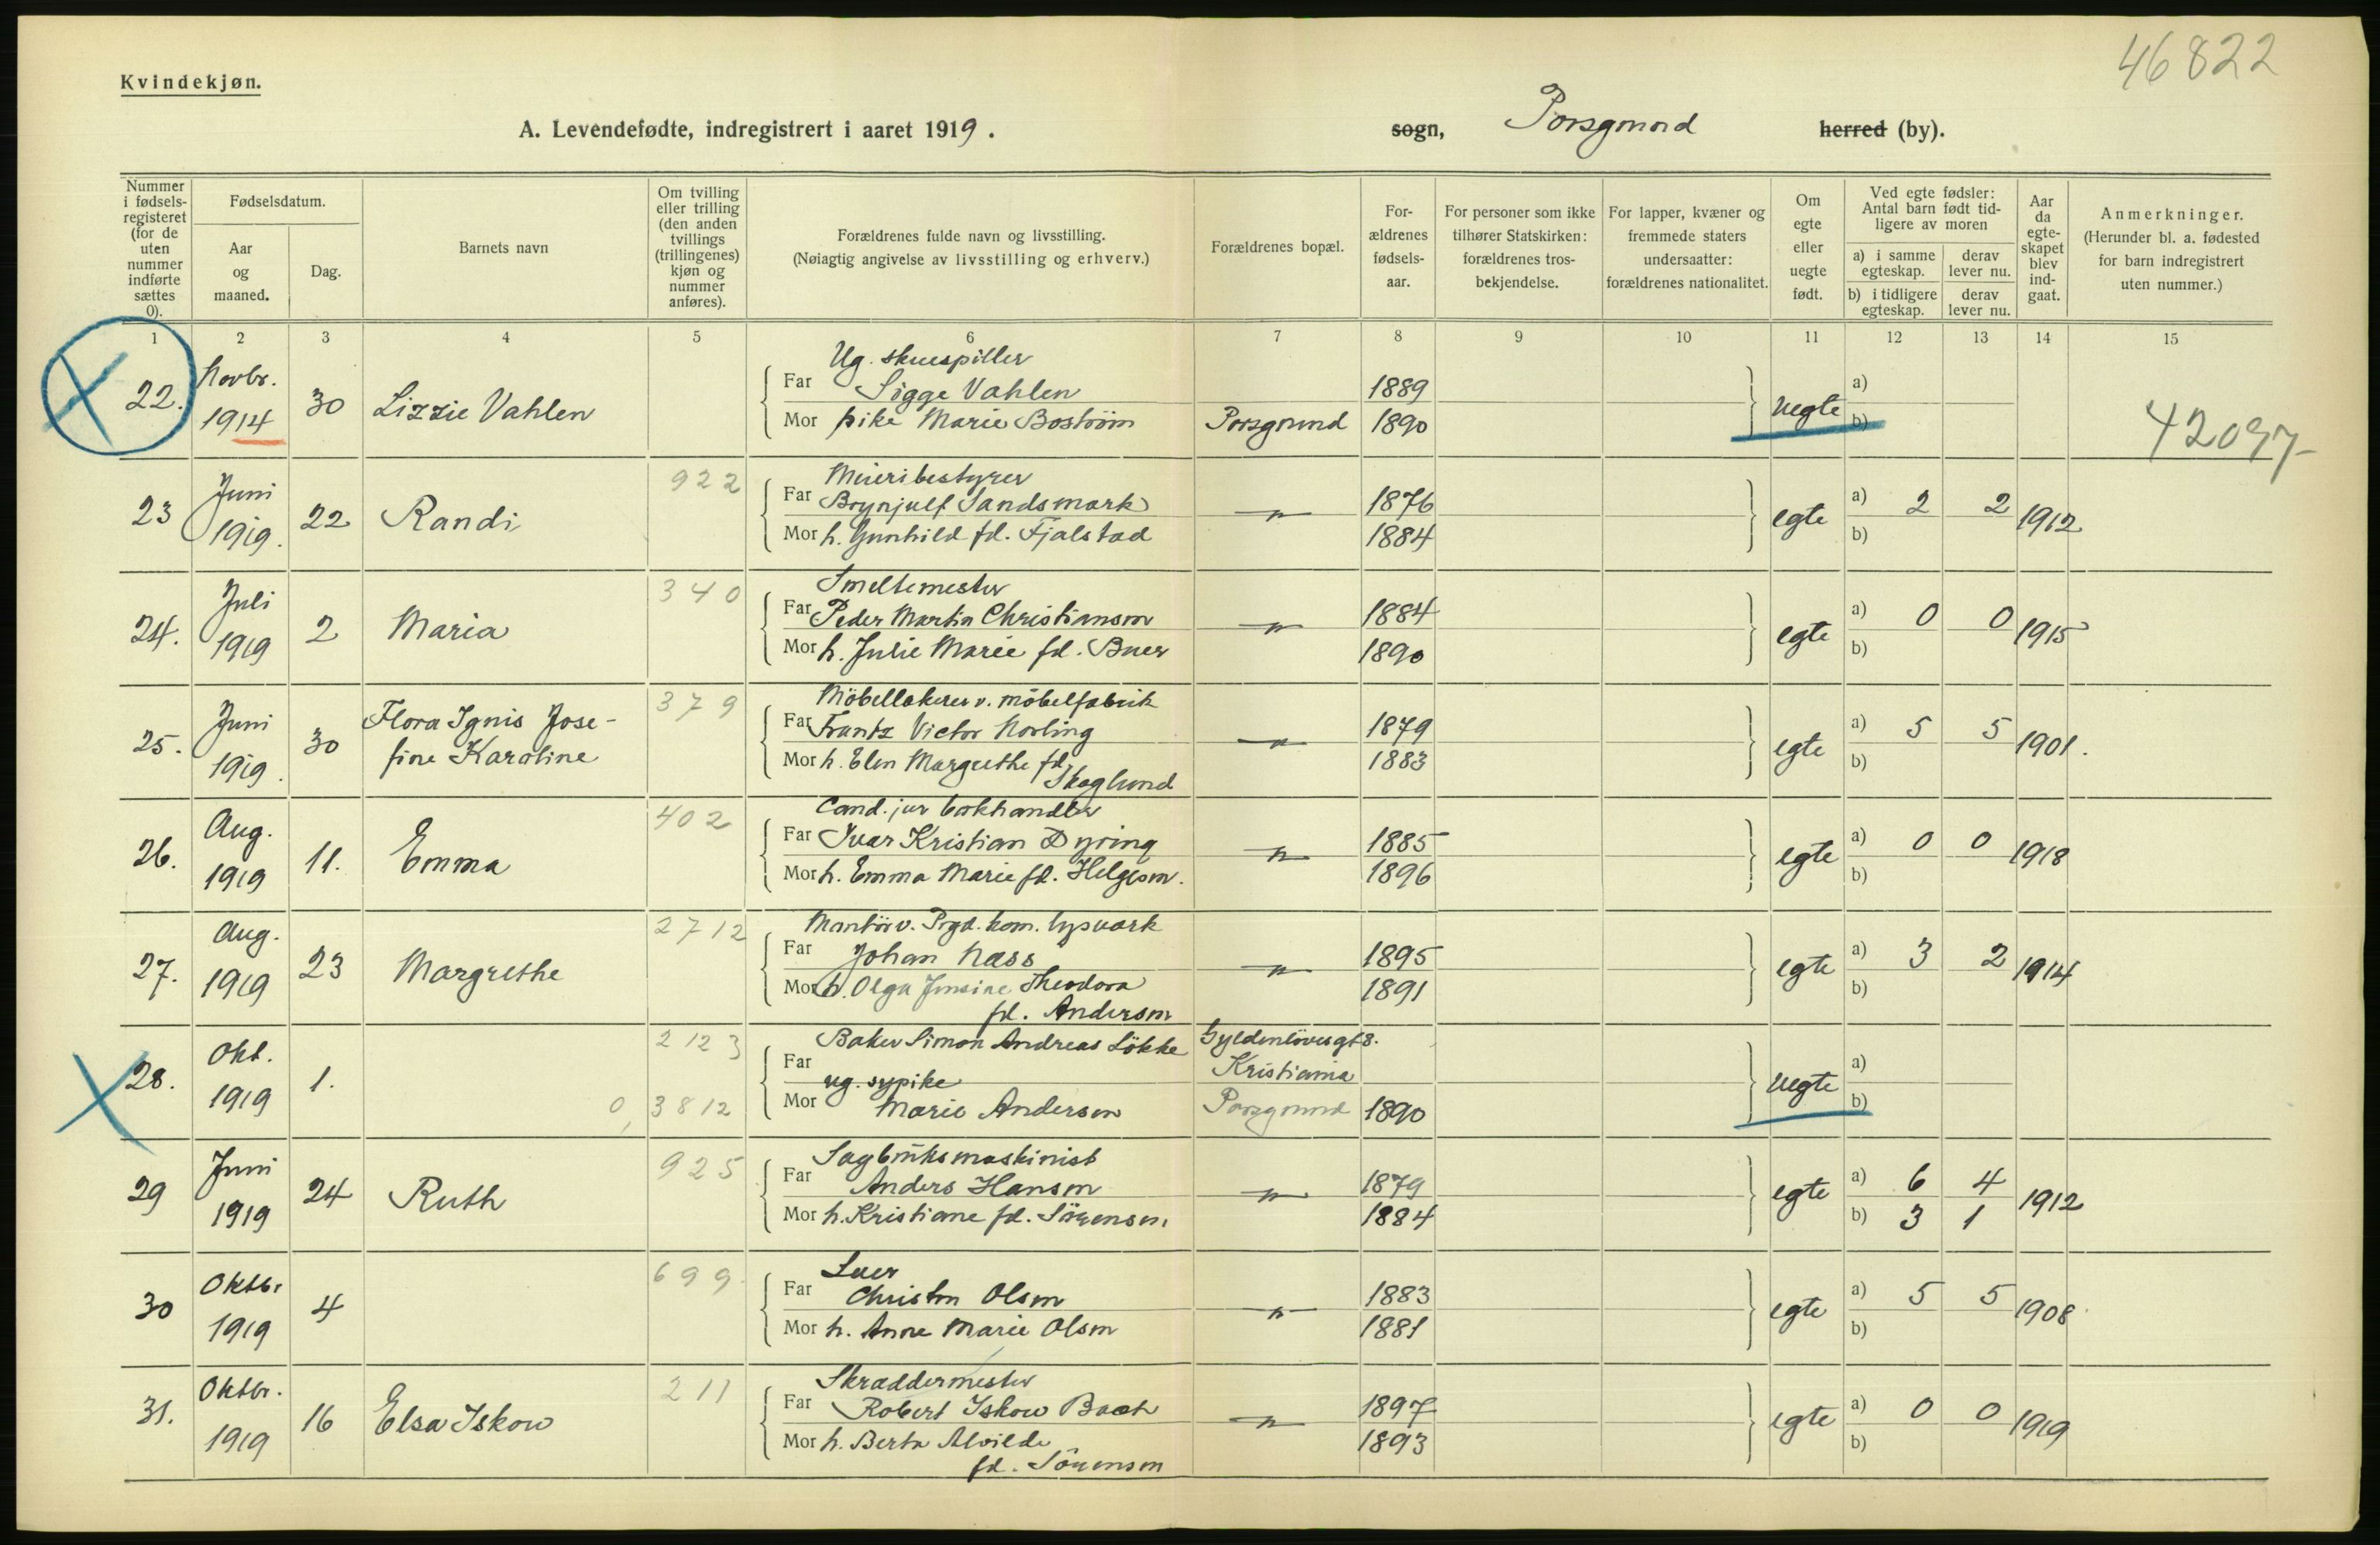 46822
Kvindekjøn.
A. Levendefødte, indregistrert i aaret 1919. sogn, Porsgrund herred (by).
Nummer i fødsels-registeret (for de uten nummer indførte sættes 0).
Fødselsdatum.
Aar og maaned.
Dag.
Barnets navn
Om tvilling eller trilling (den anden tvillings (trillingenes) kjøn og nummer anføres).
Forældrenes fulde navn og livsstilling.
(Nøiagtig angivelse av livsstilling og erhverv.)
Forældrenes bopæl.
For-ældrenes fødsels-aar.
For personer som ikke tilhører Statskirken: forældrenes tros-bekjendelse.
For lapper, kvæner og fremmede staters undersaatter: forældrenes nationalitet.
Om egte eller uegte født.
Ved egte fødsler: Antal barn født tid-ligere av moren
a) i samme egteskap.
derav lever nu.
b) i tidligere egteskap.
derav lever nu.
Aar da egte-skapet blev ind-gaat.
Anmerkninger.
(Herunder bl. a. fødested for barn indregistrert uten nummer.)
1 2 3 4 5 6 7 8 9 10 11 12 13 14 15
Ug. skuespiller
22. Novbr. 1914 30 Lizzie Vahlen Far Sigge Vahlen 1889 uegte a)
Mor pike Marie Boström Porsgrund 1890 b) 42097
922 Meieribestyrer
23 Juni 1919. 22 Randi Far Brynjulf Sandsmark 〃 1876 egte a) 2 2 1912
Mor h. Gunhild fd. Fjalstad 1884 b)
340 Smeltemester
24. Juli 1919 2 Maria Far Peder Martin Christiansen 〃 1884 egte a) 0 0 1915
Mor h. Julie Marie fd. Buer 1890 b)
379 Möbellakerer v. möbelfabrik
25. Juni 1919. 30 Flora Ignis Jose- Far Frantz Victor Norling 〃 1879 egte a) 5 5 1901.
fine Karoline Mor h. Elen Margrethe fd. 1883 b)
Skoglund
402 Cand. jur bokhandler
26. Aug. 1919 11. Emma Far Ivar Kristian Dyring 〃 1885 egte a) 0 0 1918
Mor h. Emma Marie fd. Helgesen. 1896 b)
2712 Montör v. Prgd. kom. lysverk
27. Aug. 1919 23 Margrethe Far Johan Næss 〃 1895 egte a) 3 2 1914
Mor h. Olga Jensine Theodora 1891 b)
fd. Andersen
2123 Baker Simon Andreas Lökke Gyldenlövesgt 8.
28. Okt. 1919 1. Far Kristiania uegte a)
ug. sypike
0, 3812 Mor Marie Andersen Porsgrund 1890 b)
925 Sagbruksmaskinist
29 Juni 1919 24 Ruth Far Anders Hansen 〃 1879 egte a) 6 4 1912
Mor h. Kristiane fd. Sörensen 1884 b) 3 1
699
30 Oktbr 1919 4 Far Christen Olsen 〃 1883 egte a) 5 5 1908
Mor h. Anne Marie Olsen 1881 b)
211 Skræddermester
31. Oktbr. 1919 16 Elsa Iskow Far Robert Iskow Bach 〃 1897 egte a) 0 0 1919
Mor h. Berta Alvilde 1893 b)
fd. Sörensen